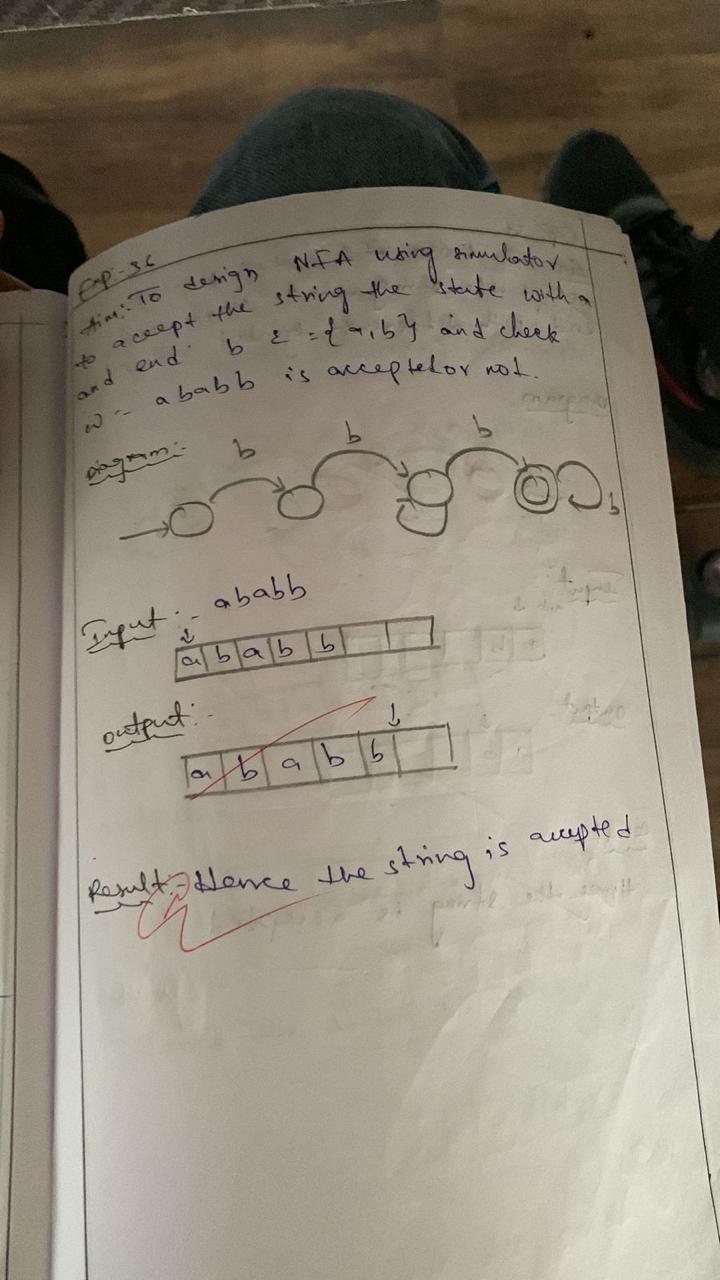 Exp:-36
Aim:- To design NFA using simulator
to accept the string the state with a
and end b Σ = {a, b} and check
w :- ababb is accepted or not.
Diagram:-
b b b
b
Input :- ababb
a b a b b
output:-
a b a b b
Result:- Hence the string is accepted